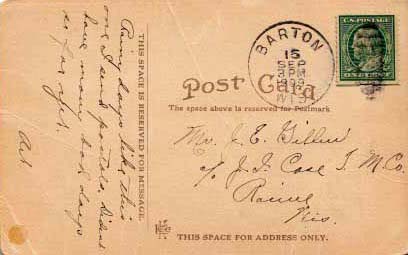 BARTON
15
SEP
3 PM
1909
WIS.
U.S. POSTAGE
ONE CENT
Post Card
The space above is reserved for Postmark
THIS SPACE IS RESERVED FOR MESSAGE.
Rainy days like this
one I send postals. Didn't
have many bad days
so far Sept.
Mr. J. E.
c/o J. I. Case T. M. Co.
Racine
Wis.
THIS SPACE FOR ADDRESS ONLY.